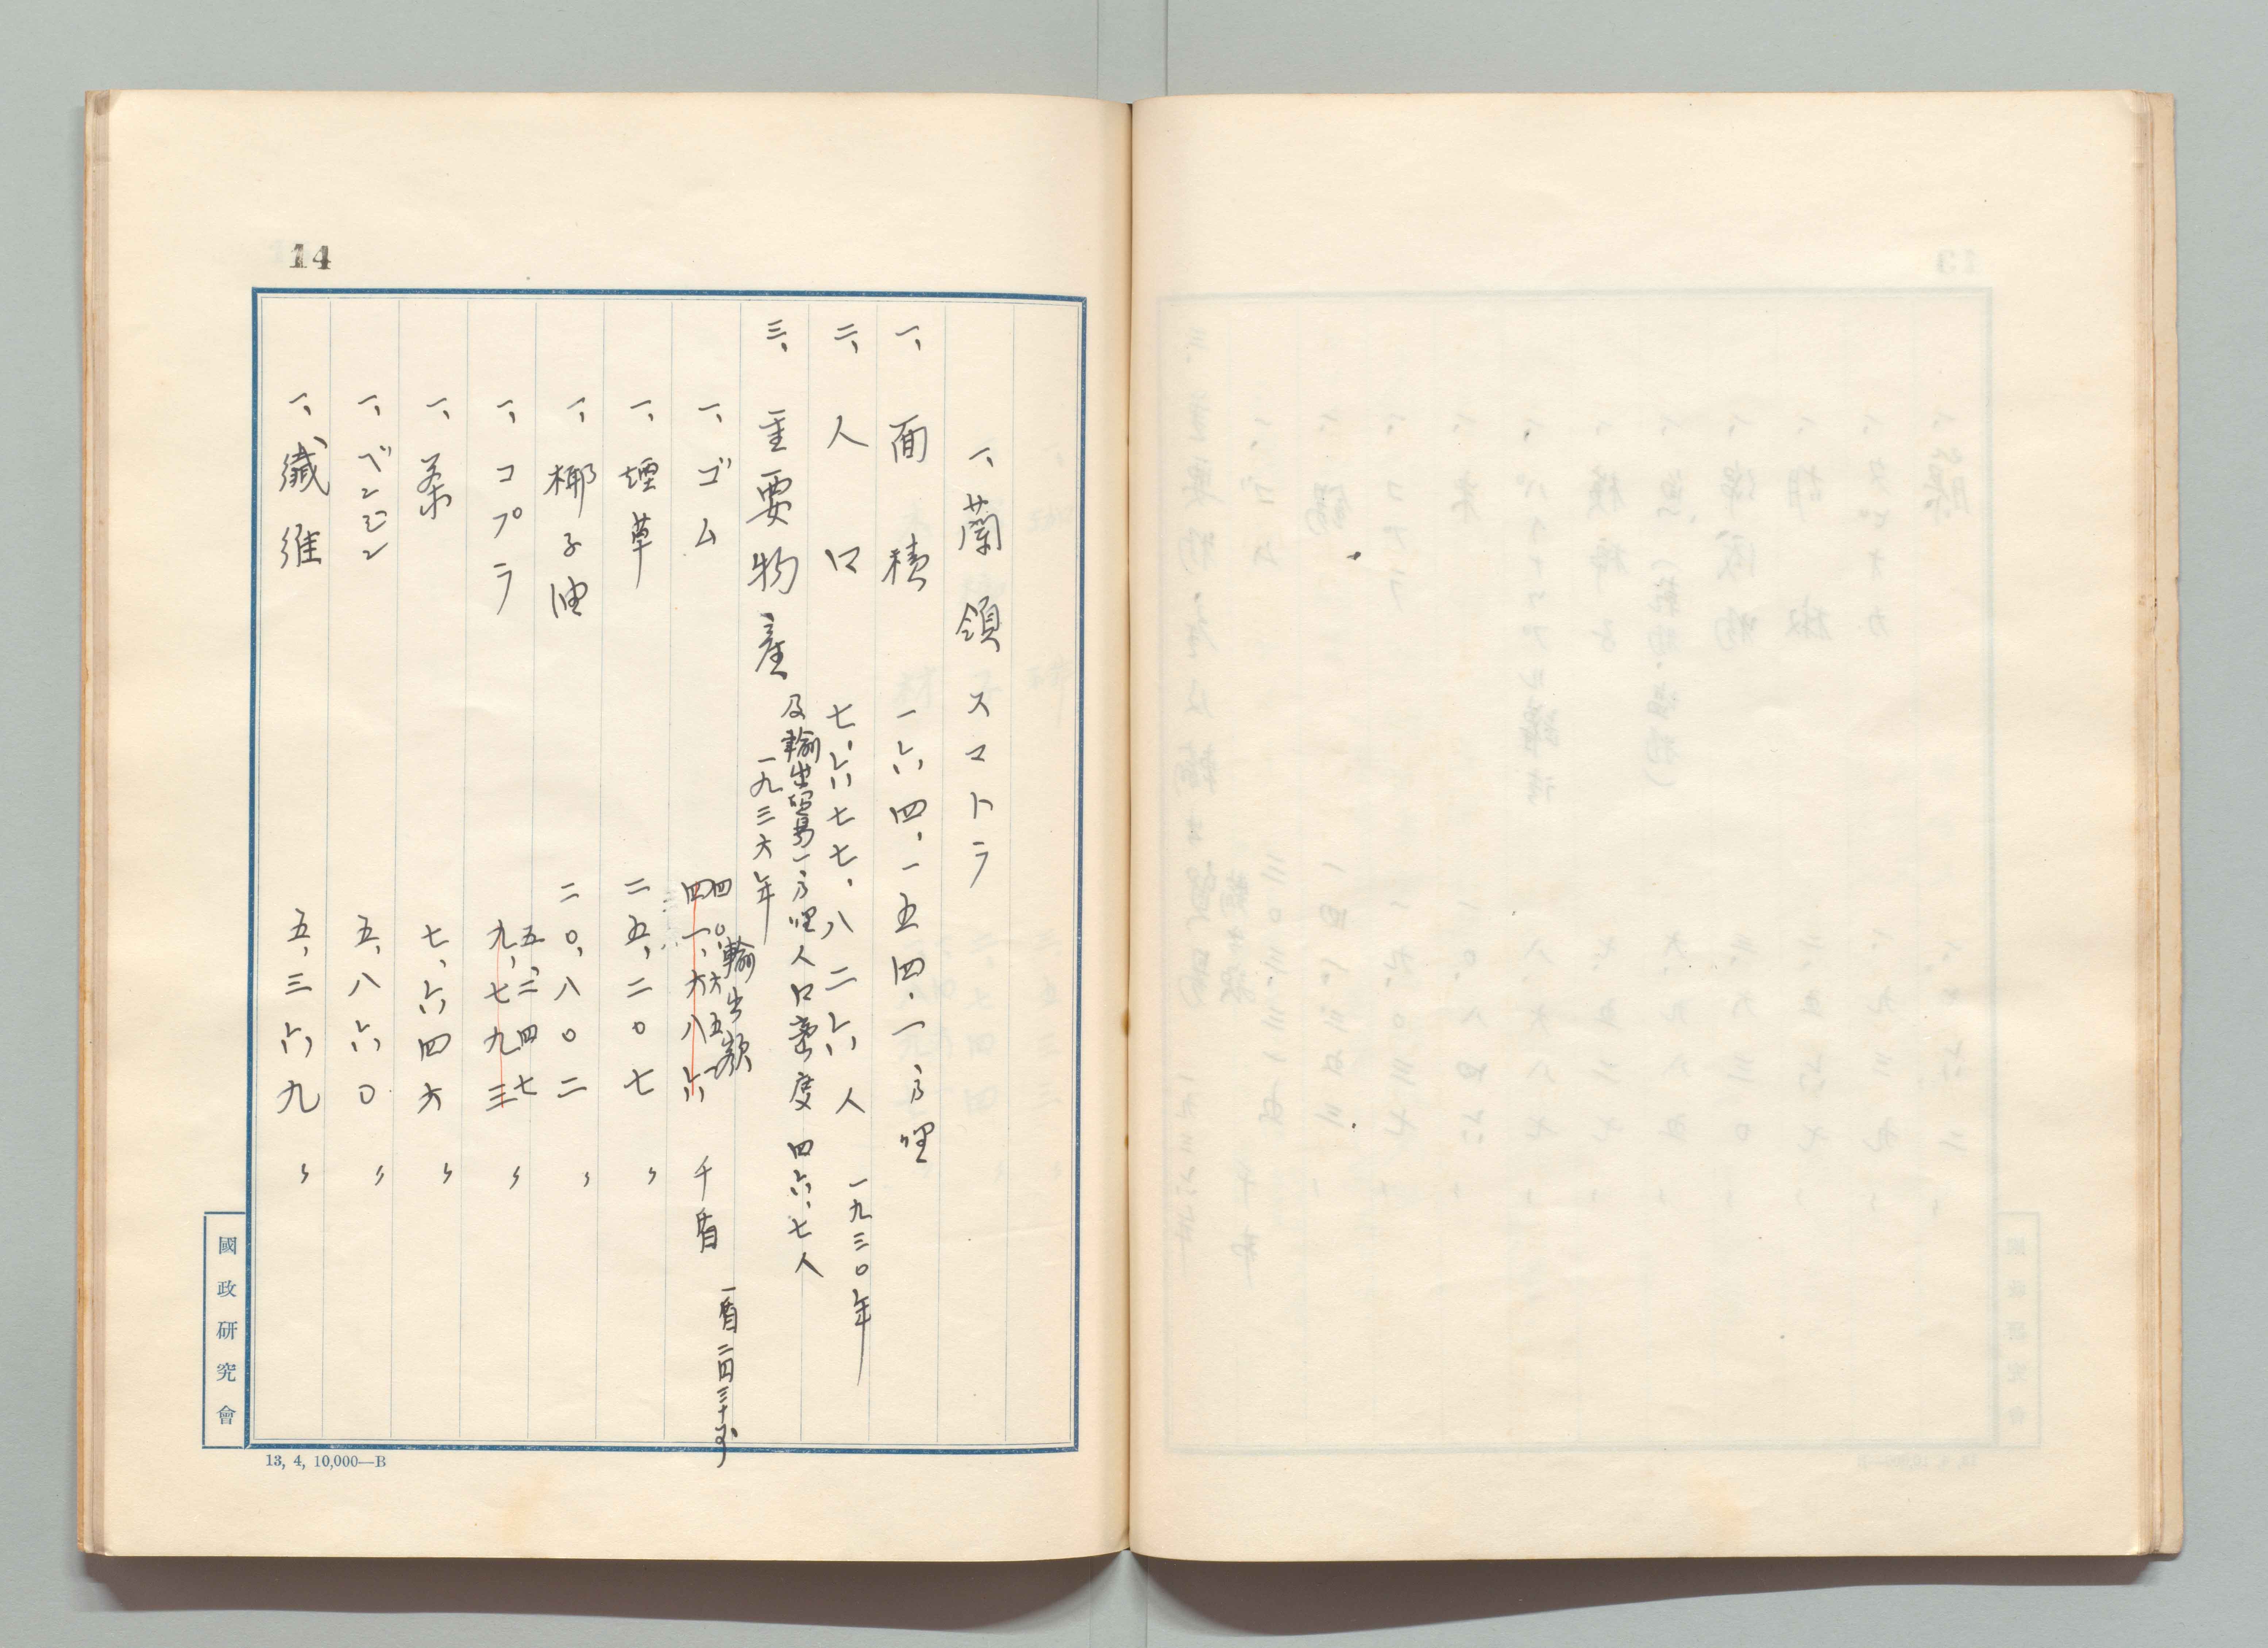 14
一、蘭領スマトラ
一、面積 一六四、一五四、一方哩
二、人口 七、六七七、八二六人 一九三〇年
一方哩人口密度 四六、七人
三、主要物産及輸出貿易
一九三六年
輸出額
四〇、六五
一、ゴム 四一、六八六 千盾
一盾二四三十
一、煙草 二五、二〇七 〃
一、椰子油 二〇、八〇二 〃
五、二四七
一、コプラ 九、七九三 〃
一、茶 七、六四六 〃
一、ベンジン 五、八六〇 〃
一、纎維 五、三六九 〃
國政研究會
13, 4, 10,000—B